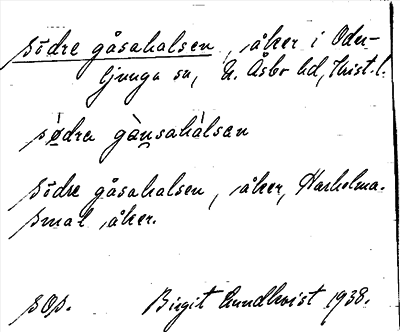 södre gåsahalsen, åker i Oder-
ljunga sn, N. Åsbo hd, Krist. l.
södra gànsahàlsan
södre gåsahalsen, åker, Harholma.
smal åker.
sOp. Birgit Lundkvist 1938.